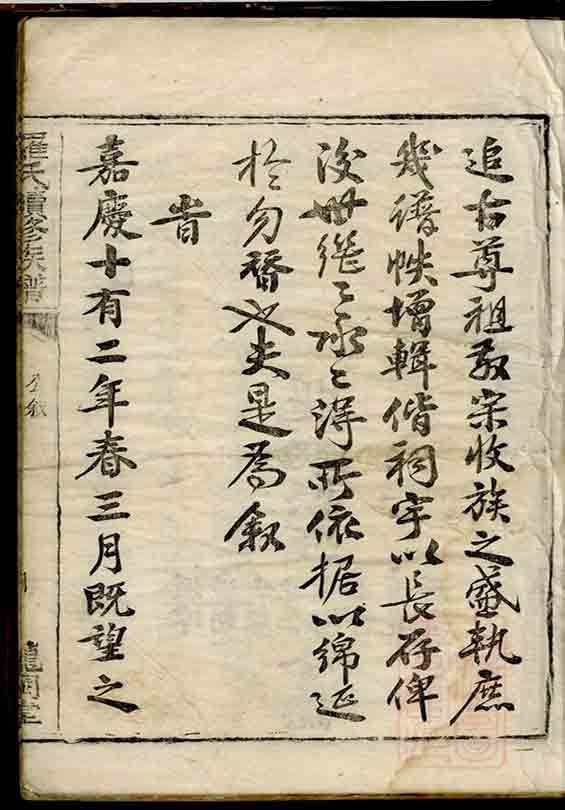 追古尊祖敬宗收族之盛執庶
幾譜帙增輯偕祠宇以長存俾
後世繼〻承〻得所依据以綿延
於勿替也夫是為叙
旹
嘉慶十有二年春三月既望之
羅氏續修族譜
叙